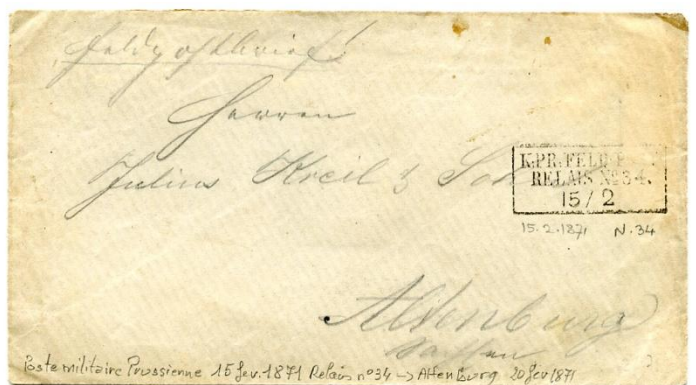 Feldpostbrief!
Herren
Julius Kreil & Sohn
K.PR. FELDPOST
RELAIS No 34.
15/2
15.2.1871 N.34
Altenburg
Sachsen
Poste militaire Prussienne 15 fev. 1871 Relais n°34 → Altenburg 20 fev 1871